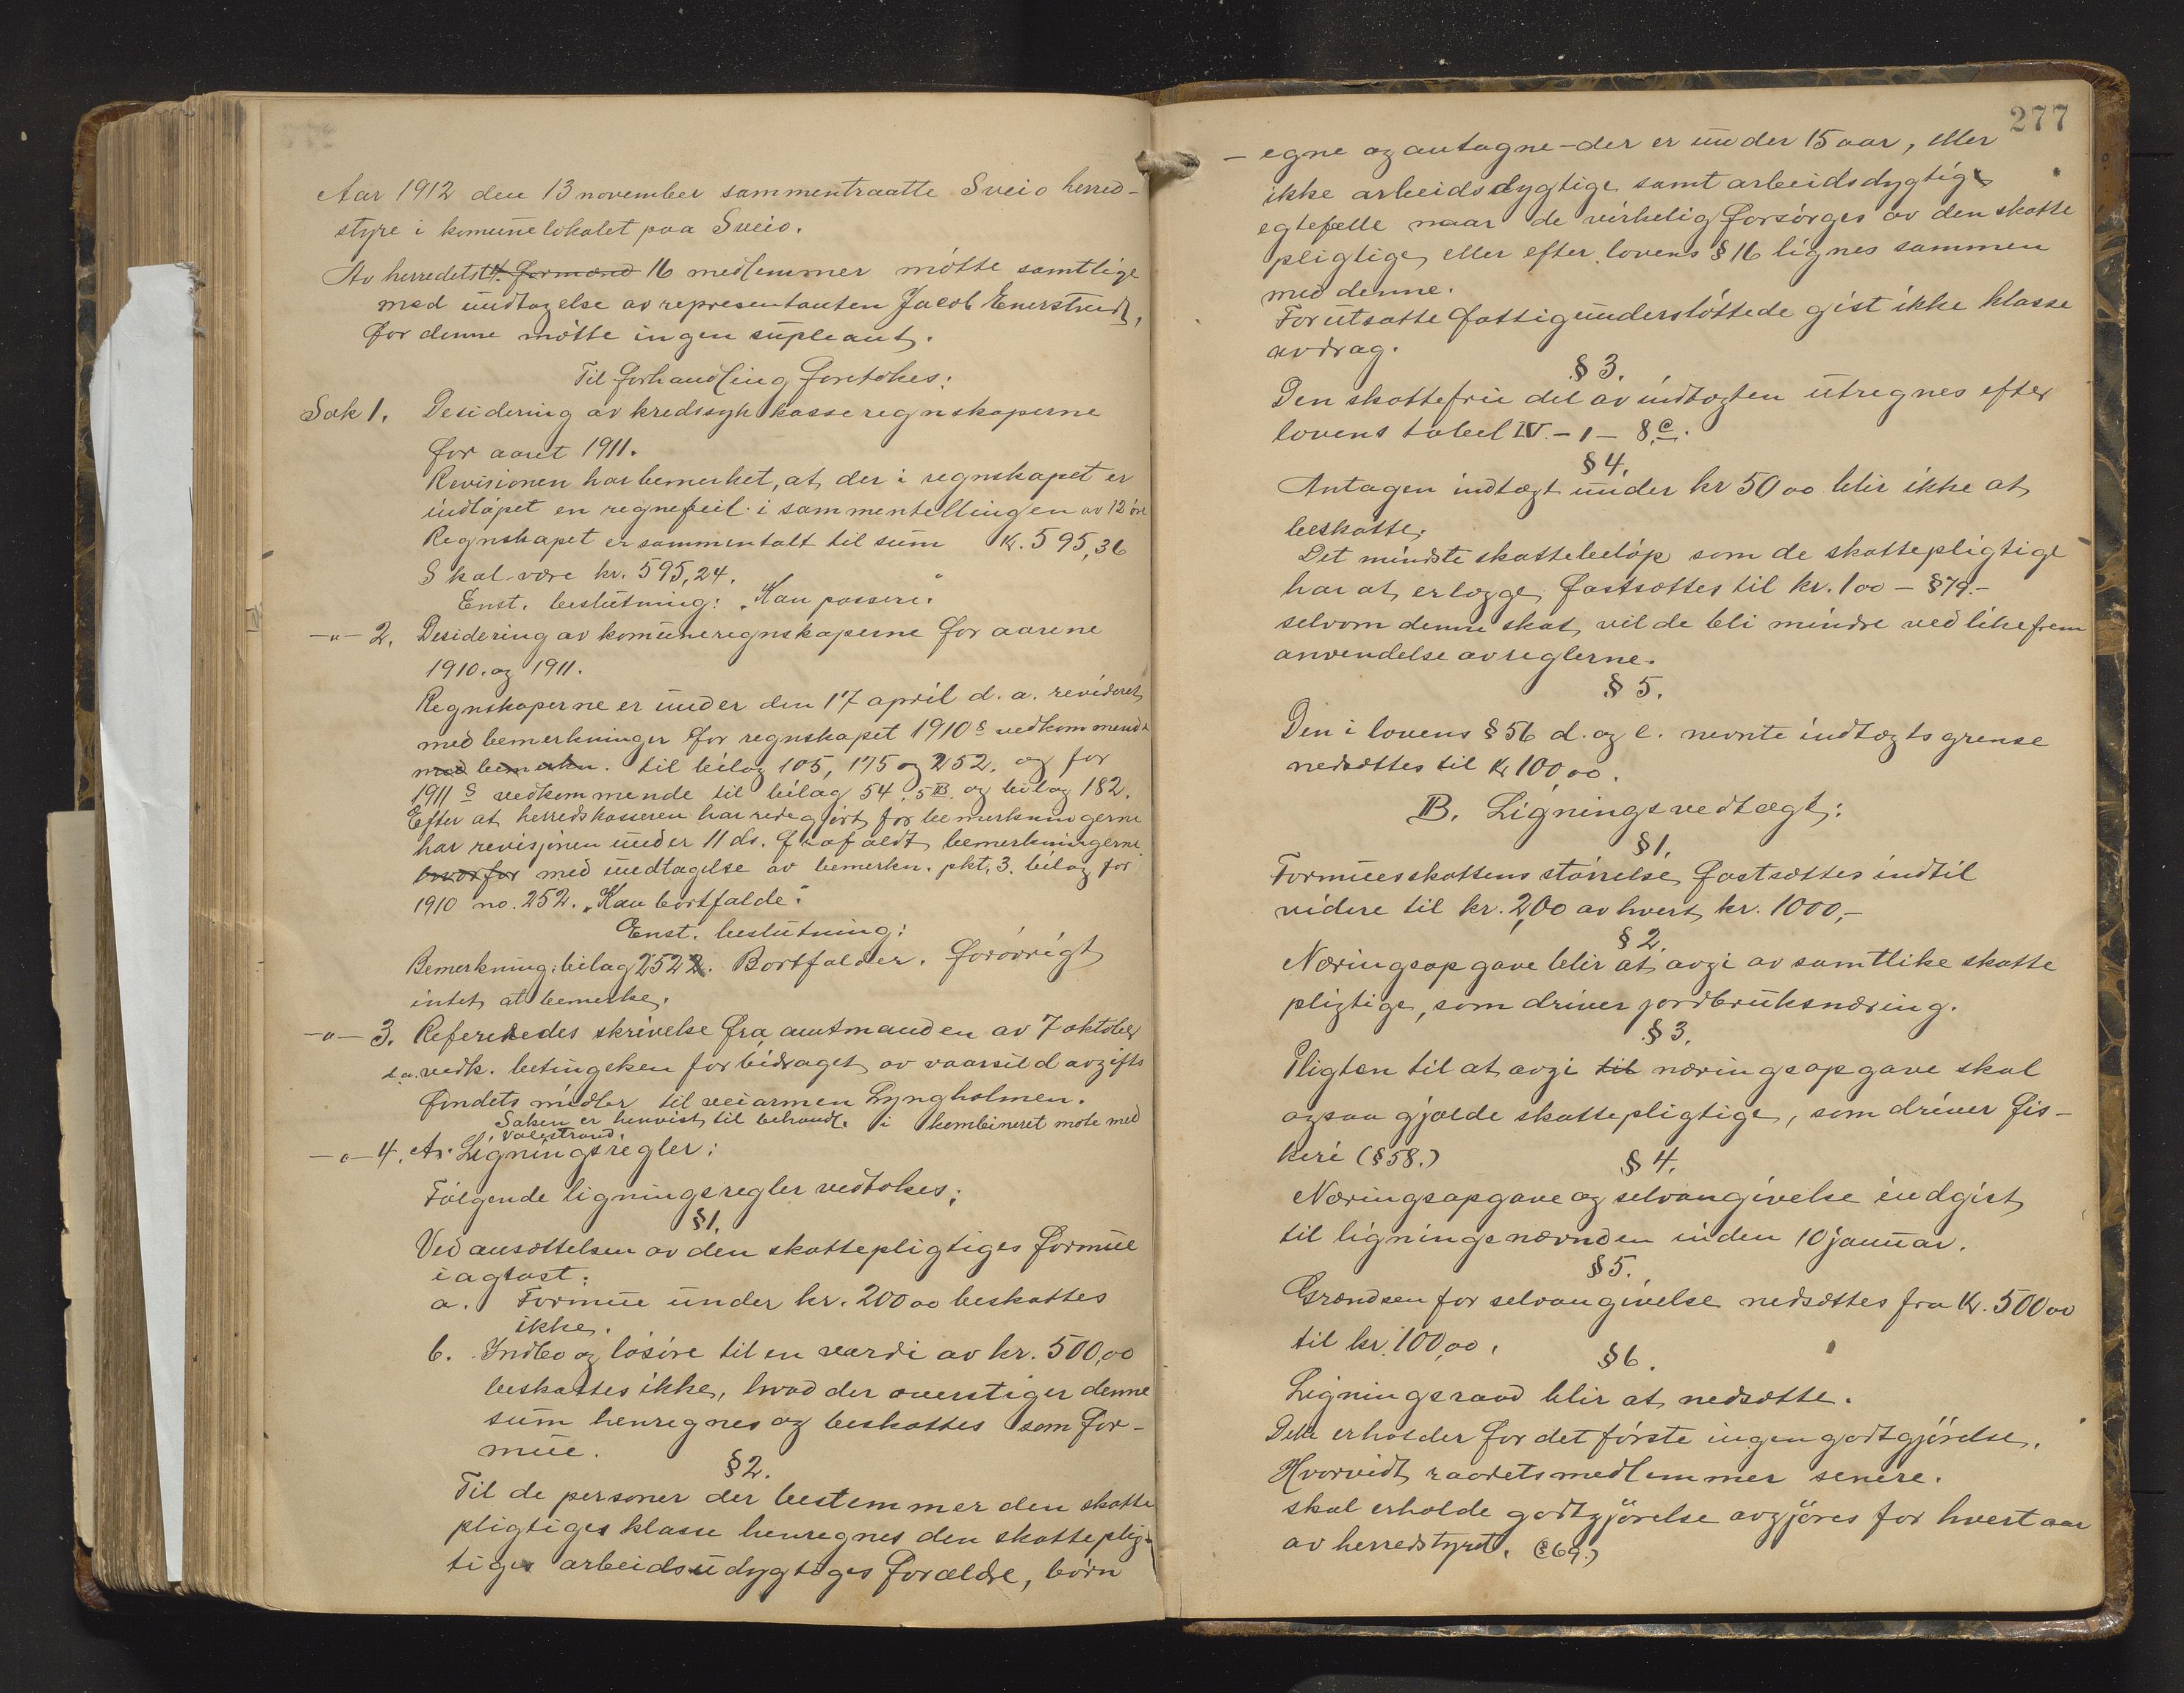 Aar 1912 den 13 november sammentraatte Sveio herred-
styre i komunelokalet paa Sveio.
Av herredets 4. formænd 16 medlemmer møtte samtlige
med undtagelse av representanten Jacob Enerstved,
for denne møtte ingen supleant.
Til forhandling foretokes:
Sak 1. Desidering av kredssykkasseregnskaperne
for aaret 1911.
Revisionen har bemerket, at der i regnskapet er
indløpet en regnefeil i sammentellingen av 12 øre
Regnskapet er sammentalt til sum Kr. 595,36
Skal være kr. 595,24.
Enst. beslutning: "Kan passere."
-"- 2. Desidering av komuneregnskaperne for aarene
1910. og 1911.
Regnskaperne er under den 17 april d. a. revideret
med bemerkninger for regnskapet 1910s vedkommende
med bemerkn. til bilag 105, 175 og 252. og for
1911s vedkommende til bilag 54, 5B. og bilag 182.
Efter at herredskasseren har redegjort for bemerkningerne
har revisjonen under 11 ds. frafaldt bemerkningerne
hvorfor med undtagelse av bemerkn. pkt. 3. bilag for
1910 no. 252. "Kan bortfalde."
Enst. beslutning:
Bemerkning: bilag 252. Bortfalder. forøvrigt
intet at bemerke.
-"- 3. Refereredes skrivelse fra amtmanden av 7 oktober
s.a. vedk. betingelsen for bidraget av vaarsildavgifts
fondets midler til veiarmen Lyngholmen.
Saken er henvist til behandl. i kombineret møte med
Valestrand.
-"- 4. A. Ligningsregler:
Følgende ligningsregler vedtokes:
§1.
Ved ansættelsen av den skattepligtiges formue
iagtast:
a. Formue under kr. 200 00 beskattes
ikke.
b. Indbo og løsøre til en værdi av kr. 500,00
beskattes ikke, hvad der overstiger denne
sum henregnes og beskattes som for-
mue.
§2.
Til de personer der bestemmer den skatte
pligtiges klasse henregnes den skatteplig-
tiges arbeidsudygtiges forældre, børn
277
- egne og antagne - der er under 15 aar, eller
ikke arbeidsdygtige samt arbeidsdygtige
egtefelle naar de virkelig forsørges av den skatte
pligtige, eller efter lovens § 16 lignes sammen
med denne.
Forutsatte fattigunderstøttede gis ikke klasse
avdrag.
§ 3.
Den skattefrie del av indtægten utregnes efter
lovens tabel IV. - 1 - 8 c.
§ 4.
Antagen indtægt under kr 50 00 blir ikke at
beskatte.
Det mindste skattebeløp som de skattepligtige
har at erlægge, fastsættes til kr. 1 00 - §79.-
selvom denne skat vilde bli mindre ved likefrem
anvendelse av reglerne.
§ 5.
Den i lovens § 56 d. og e. nevnte indtægtsgrense
nedsættes til Kr 100 00.
B. Ligningsvedtægt:
§1.
Formuesskattens størrelse fastsættes indtil
videre til kr. 2,00 av hvert kr. 1000,-
§ 2.
Næringsopgave blir at avgi av samtlike skatte
pligtige, som driver jordbruksnæring.
§ 3.
Pligten til at avgi til næringsopgave skal
ogsaa gjælde skattepligtige, som driver fis-
keri (§ 58.)
§ 4.
Næringsopgave og selvangivelse indgis
til ligningsnævnden inden 10 januar.
§ 5.
Grændsen for selvangivelse nedsættes fra Kr. 500 00
til kr. 100,00.
§ 6.
Ligningsraad blir at nedsætte.
Dette erholder for det første ingen godtgjørelse.
Hvorvidt raadets medlemmer senere.
skal erholde godtgjørelse avgjøres for hvert aar
av herredstyret. (§ 69.)